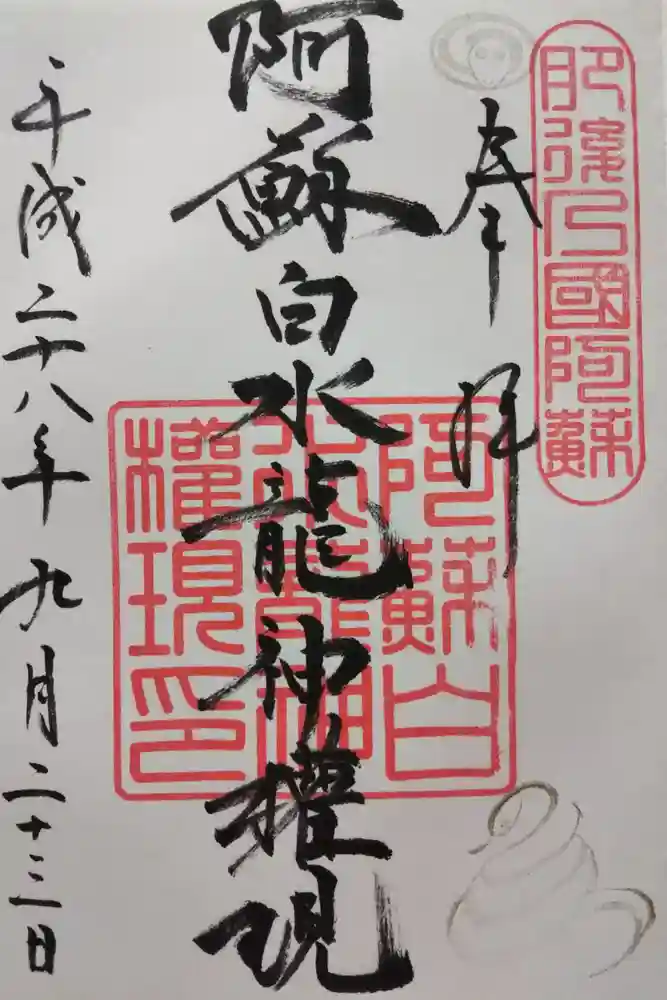 肥後乃國阿蘇
奉拝
阿蘇白水龍神權現
阿蘇白
水龍神
權現印
平成二十八年九月二十三日